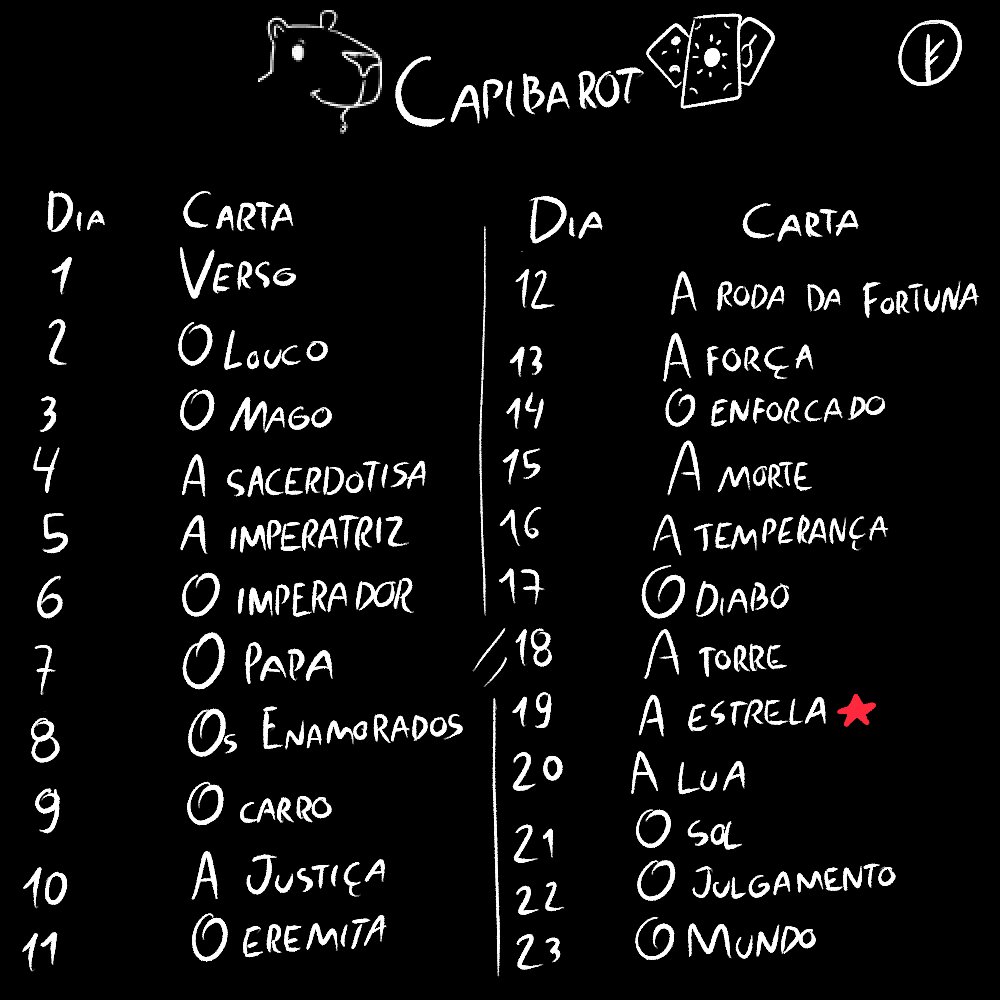 CAPIBAROT
DIA CARTA
1 VERSO
2 O LOUCO
3 O MAGO
4 A SACERDOTISA
5 A IMPERATRIZ
6 O IMPERADOR
7 O PAPA
8 OS ENAMORADOS
9 O CARRO
10 A JUSTIÇA
11 O EREMITA
DIA CARTA
12 A RODA DA FORTUNA
13 A FORÇA
14 O ENFORCADO
15 A MORTE
16 A TEMPERANÇA
17 O DIABO
18 A TORRE
19 A ESTRELA
20 A LUA
21 O SOL
22 O JULGAMENTO
23 O MUNDO